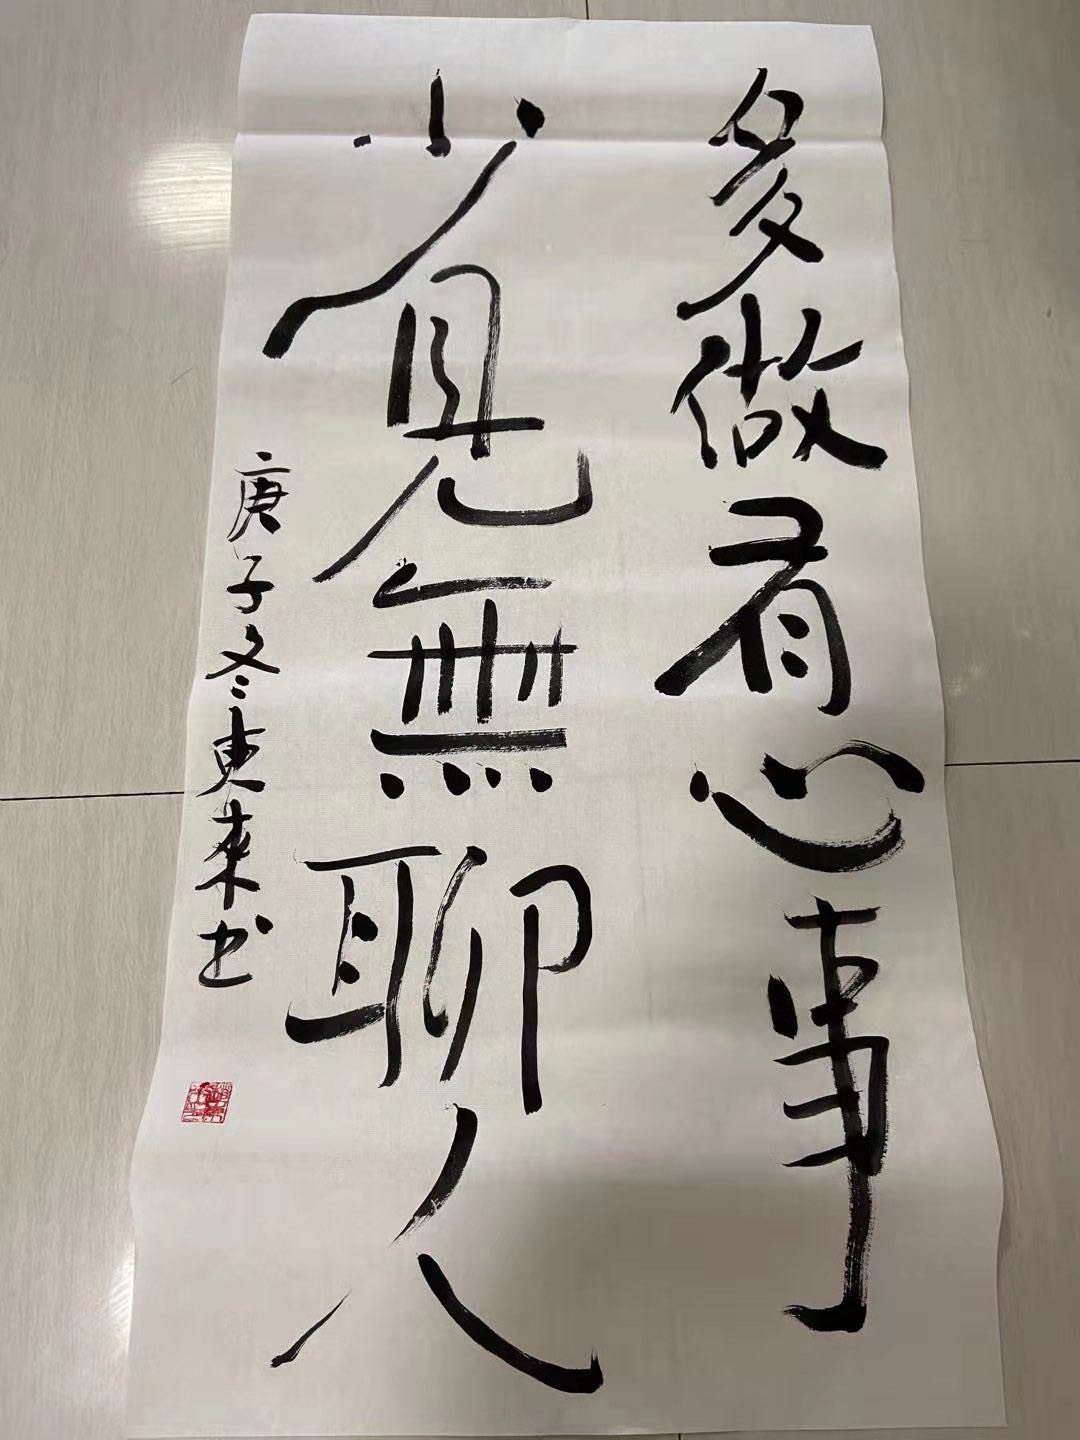 多做有心事
少見無聊人
庚子冬東來书